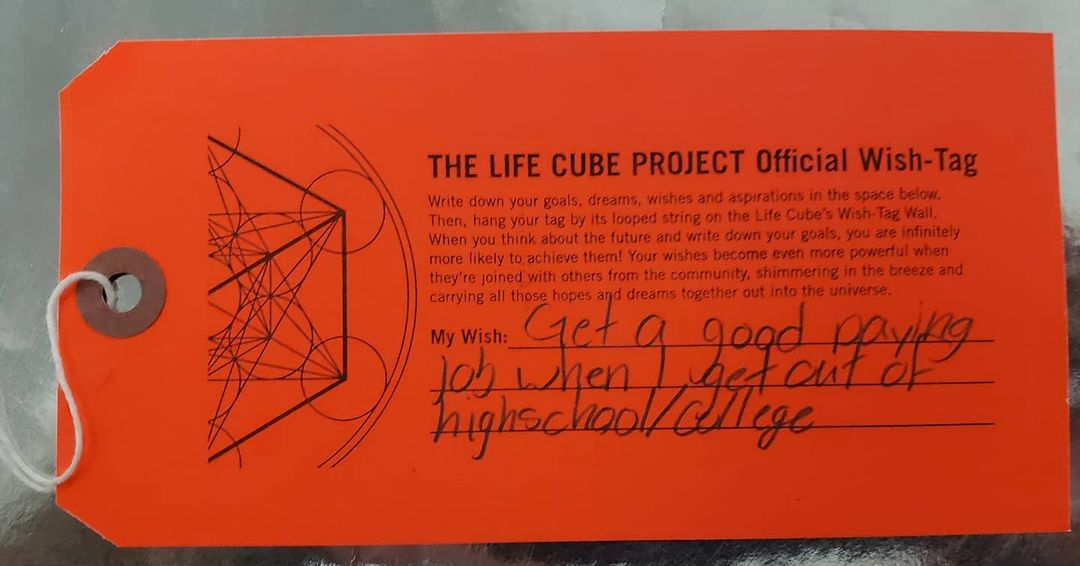 THE LIFE CUBE PROJECT Official Wish-Tag
Write down your goals, dreams, wishes and aspirations in the space below.
Then, hang your tag by its looped string on the Life Cube's Wish-Tag Wall.
When you think about the future and write down your goals, you are infinitely
more likely to achieve them! Your wishes become even more powerful when
they're joined with others from the community, shimmering in the breeze and
carrying all those hopes and dreams together out into the universe.
My Wish: Get a good paying
job when I get out of
highschool/college